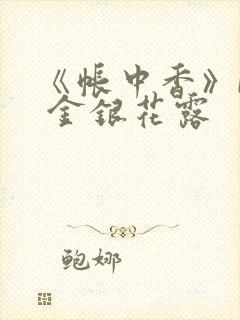 《帐中香》
金银花露
鲍娜